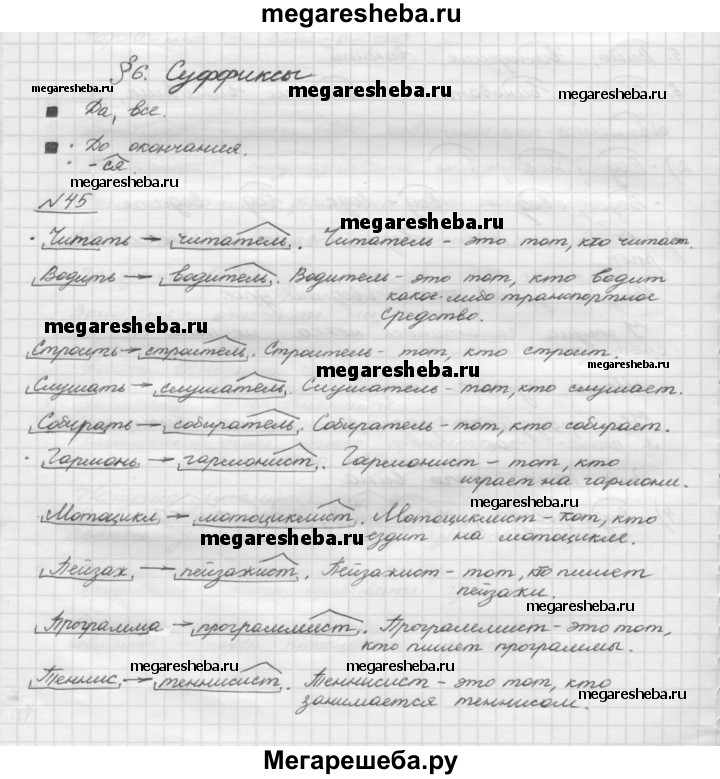 megaresheba.ru
§6. Суффиксы
megaresheba.ru
megaresheba.ru
megaresheba.ru
Да, все.
· До окончания.
· -ся
megaresheba.ru
№45
megaresheba.ru
· Читать → читатель. Читатель - это тот, кто читает.
Водить → водитель. Водитель - это тот, кто водит
какое-либо транспортное
средство.
megaresheba.ru
Строить → строитель. Строитель - тот, кто строит.
megaresheba.ru
Слушать → слушатель. Слушатель - тот, кто слушает.
Собирать → собиратель. Собиратель - тот, кто собирает.
· Гармонь → гармонист. Гармонист - тот, кто
играет на гармони.
megaresheba.ru
Мотоцикл → мотоциклист. Мотоциклист - тот, кто
ездит на мотоцикле.
megaresheba.ru
Пейзаж → пейзажист. Пейзажист - тот, кто пишет
пейзажи.
megaresheba.ru
Программа → программист. Программист - это тот,
кто пишет программы.
megaresheba.ru
megaresheba.ru
Теннис → теннисист. Теннисист - это тот, кто
занимается теннисом.
megaresheba.ru
Мегарешеба.ру